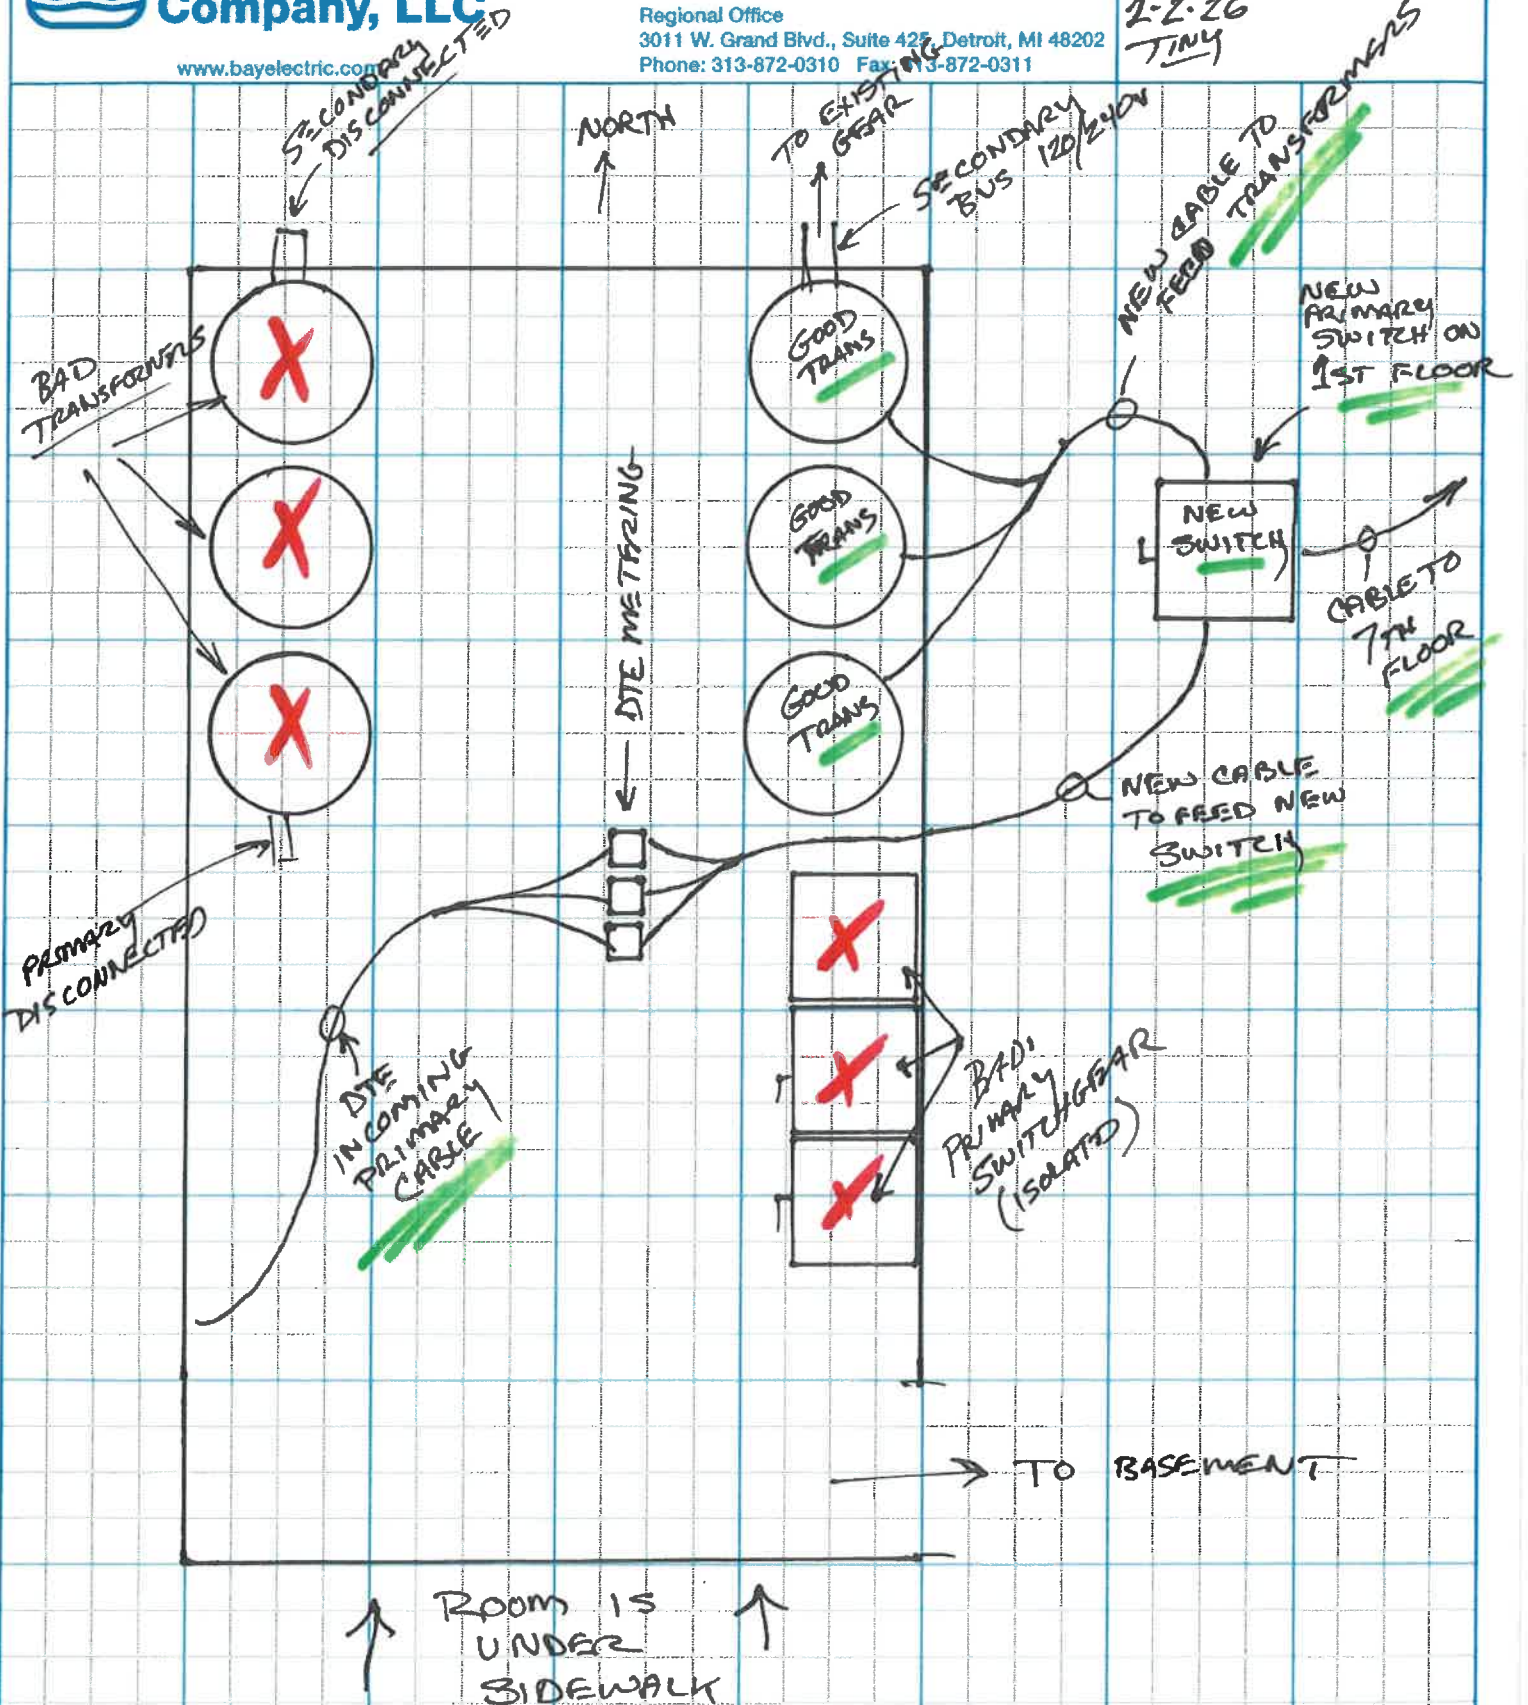 Company, LLC
www.bayelectric.com
Regional Office
3011 W. Grand Blvd., Suite 425, Detroit, MI 48202
Phone: 313-872-0310 Fax: 313-872-0311
2-2-26
TINY
SECONDARY
DISCONNECTED
NORTH
TO EXISTING
GEAR
SECONDARY
BUS 120/240V
NEW CABLE TO
FEED TRANSFORMERS
NEW
PRIMARY
SWITCH ON
1ST FLOOR
BAD
TRANSFORMERS
X
X
X
GOOD
TRANS
GOOD
TRANS
GOOD
TRANS
DTE METERING
NEW
SWITCH
CABLE TO
7TH
FLOOR
NEW CABLE
TO FEED NEW
SWITCH
PRIMARY
DISCONNECTED
DTE
INCOMING
PRIMARY
CABLE
X
X
X
BAD
PRIMARY
SWITCHGEAR
(ISOLATED)
TO BASEMENT
ROOM IS
UNDER
SIDEWALK